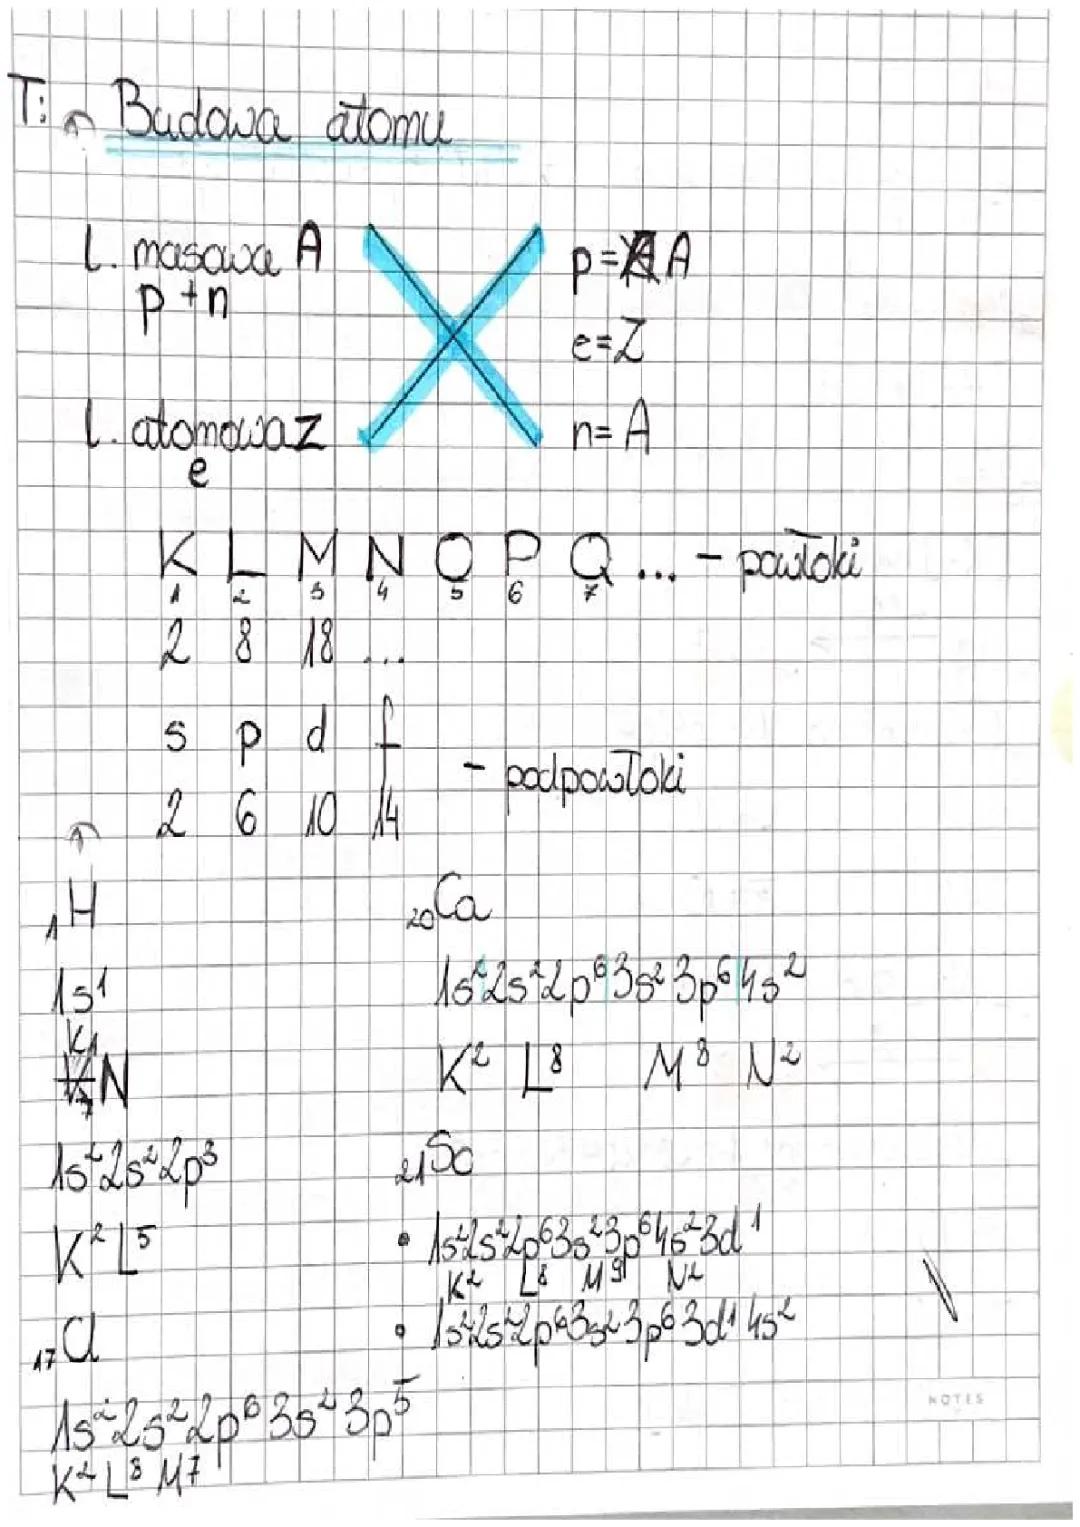 T: Budowa atomu
l. masowa A
p+n
p= A
e=Z
l. atomowa Z
e
n= A
K L M N O P Q ... - powłoki
1 2 3 4 5 6 7
2 8 18 ...
s p d f
- podpowłoki
2 6 10 14
₁H
1s¹
K¹
₇N
1s²2s²2p³
K² L⁵
₁₇Cl
1s²2s²2p⁶3s²3p⁵
K² L⁸ M⁷
₂₀Ca
1s²2s²2p⁶3s²3p⁶4s²
K² L⁸ M⁸ N²
₂₁Sc
• 1s²2s²2p⁶3s²3p⁶4s²3d¹
K² L⁸ M⁹ N²
• 1s²2s²2p⁶3s²3p⁶3d¹4s²
NOTES